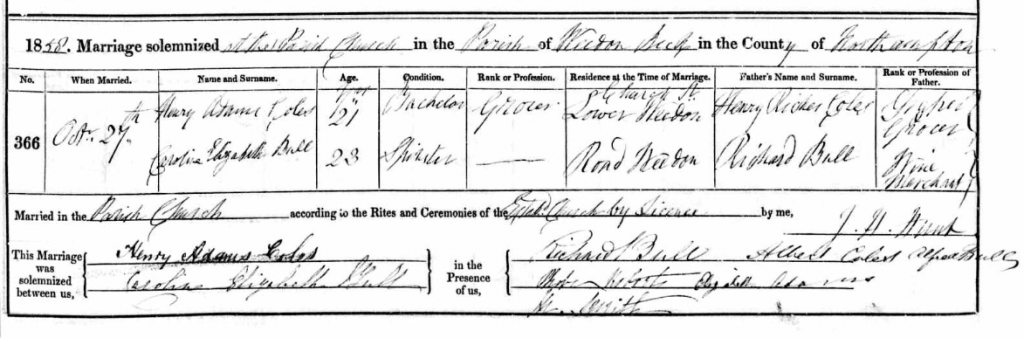 1858. Marriage solemnized at the Parish Church in the Parish of Weedon Beck in the County of Northampton
No. When Married. Name and Surname. Age. Condition. Rank or Profession. Residence at the Time of Marriage. Father's Name and Surname. Rank or Profession of Father.
366 Octr. 27th Henry Adams Coles 21 Bachelor Grocer Church St. Lower Weedon Henry Coles Grocer
Caroline Elizabeth Bull 23 Spinster — Road Weedon Richard Bull Wine Merchant
Married in the Parish Church according to the Rites and Ceremonies of the Estabd. Church by Licence by me,
This Marriage was solemnized between us, Henry Adams Coles
Caroline Elizabeth Bull
in the Presence of us, Richard Bull Albert Coles Alfred Bull
Elizabeth Adams